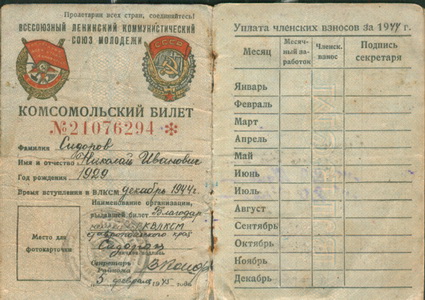 Пролетарии всех стран, соединяйтесь!
ВСЕСОЮЗНЫЙ ЛЕНИНСКИЙ КОММУНИСТИЧЕСКИЙ
СОЮЗ МОЛОДЕЖИ
КОМСОМОЛЬСКИЙ БИЛЕТ
№21076294
Фамилия Сидоров
Имя и отчество Николай Иванович
Год рождения 1929
Время вступления в ВЛКСМ декабрь 1944г.
Наименование организации,
выдавшей билет Благодар
Место для
фотокарточки
Секретарь
5 февраля 1945 года
Уплата членских взносов за 1944 г.
Месяц
Месяч-
ный за-
работок
Членск.
взнос
Подпись
секретаря
Январь
Февраль
Март
Апрель
Май
Июнь
Июль
Август
Сентябрь
Октябрь
Ноябрь
Декабрь